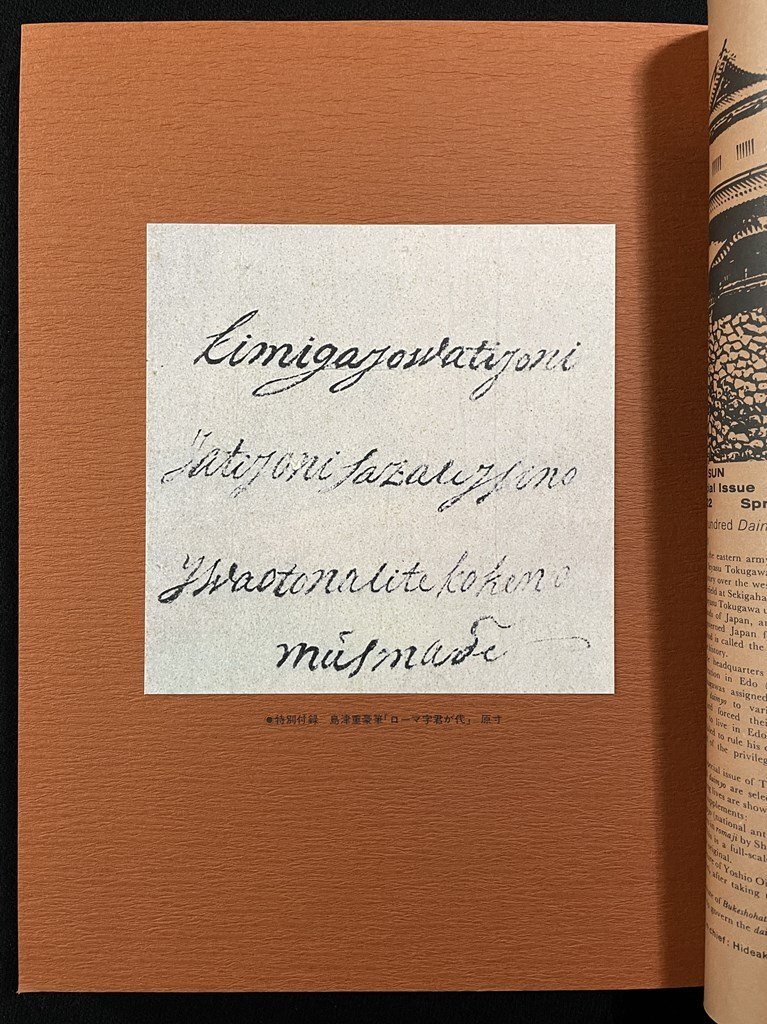 kimigayowatiyoni
Yatiyoni sazaleysino
Ywaotonalite kokeno
müsmade
●特別付録 島津重豪筆「ローマ字君が代」 原寸
SUN
ial Issue
2 Spr
undred Dain
eastern army
yasu Tokugawa
ry over the wes
field at Sekigaha
yasu Tokugawa u
of Japan, an
erned Japan f
d is called the
history.
headquarters
ation in Edo
gawas assigned
daimyo to vari
forced their
to live in Edo
ed to rule his
of the privileg
ecial issue of T
daimyo are selec
lives are show
pplements:
(national ant
romaji by Sh
is a full-scale
original.
of Yoshio O
after taking
of Bukeshohat
govern the dai
chief: Hideak